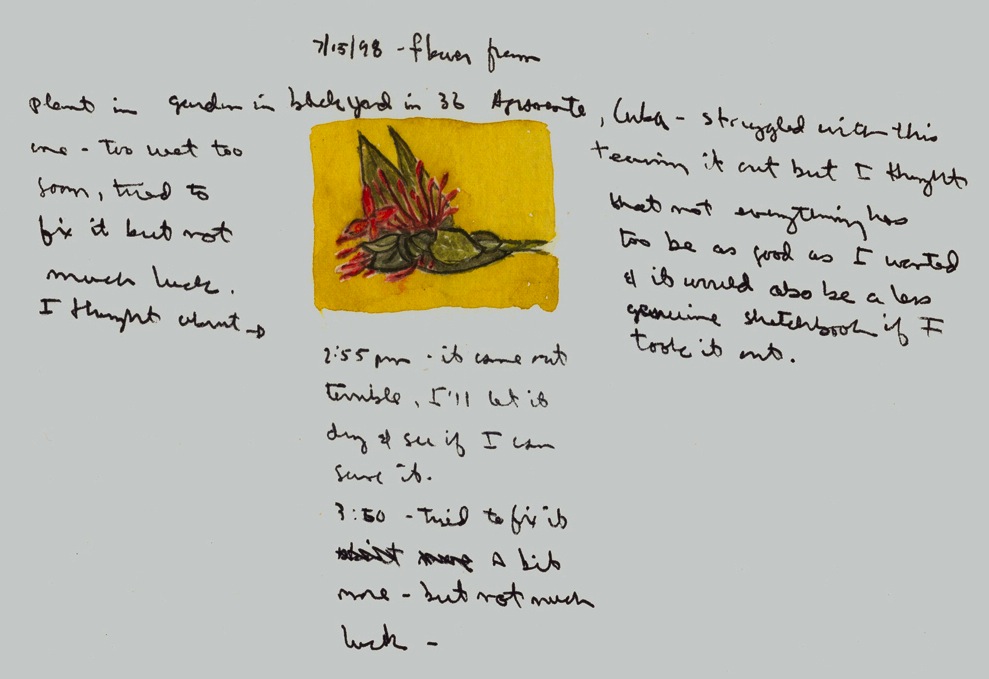 7/15/98 - flower from
plant in garden in backyard in 36, Cuba - struggled with this
one - too wet too
soon, tried to
fix it but not
much luck.
I thought about →
tearing it out but I thought
that not everything has
too be as good as I wanted
& it would also be a less
genuine sketchbook if I
took it out.
2:55 pm - it came out
terrible, I'll let it
dry & see if I can
save it.
3:50 - tried to fix it
a bit
more - but not much
luck -